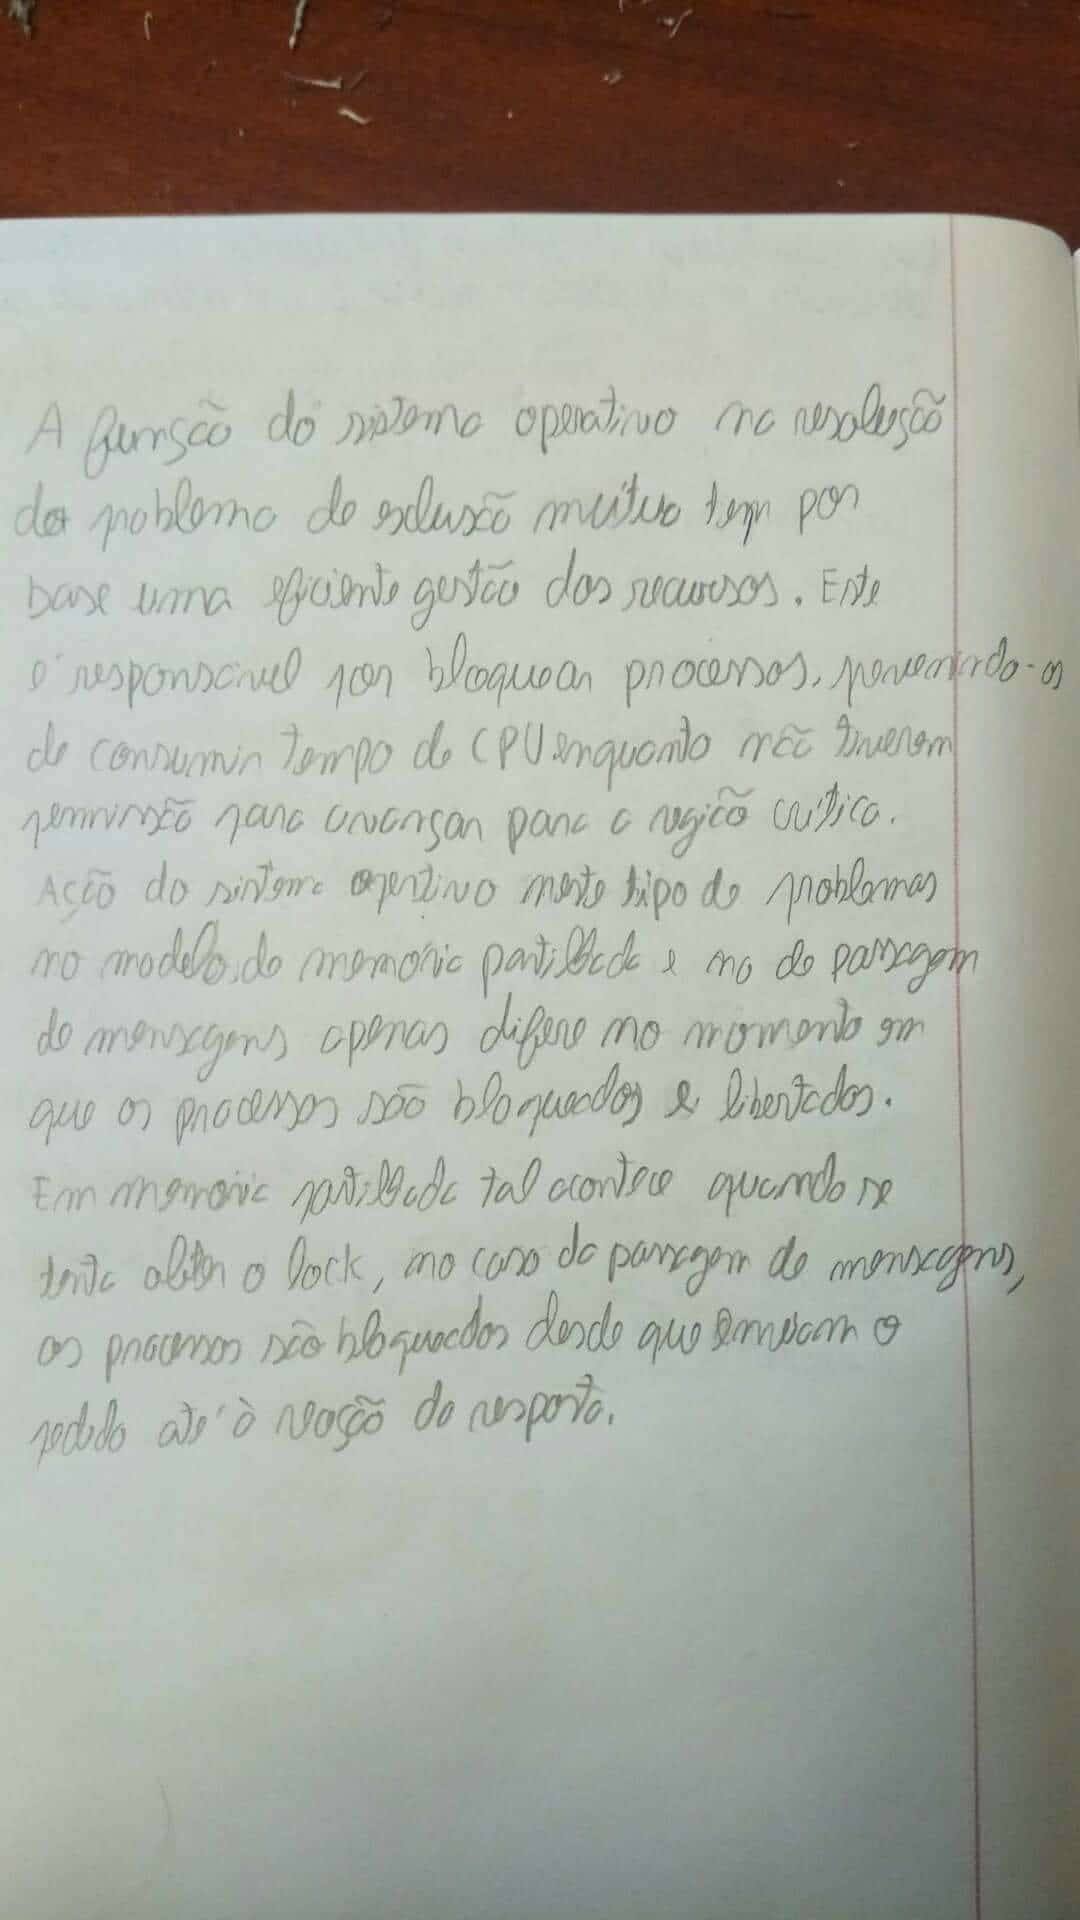 A função do sistema operativo na resolução
do problema de exclusão mutua tem por
base uma eficiente gestão dos recursos. Este
é responsavel por bloquear processos, prevenindo-os
de consumir tempo de CPU enquanto não tiverem
permissão para avançar para a região critica.
Ação do sistema opertivo neste tipo de problemas
no modelo de memória partilhada e no de passagem
de mensagens apenas difere no momento em
que os processos são bloqueados e libertados.
Em memória partilhada tal acontece quando se
tenta obter o lock, no caso da passagem de mensagens,
os processos são bloqueados desde que enviam o
pedido até à da resposta.